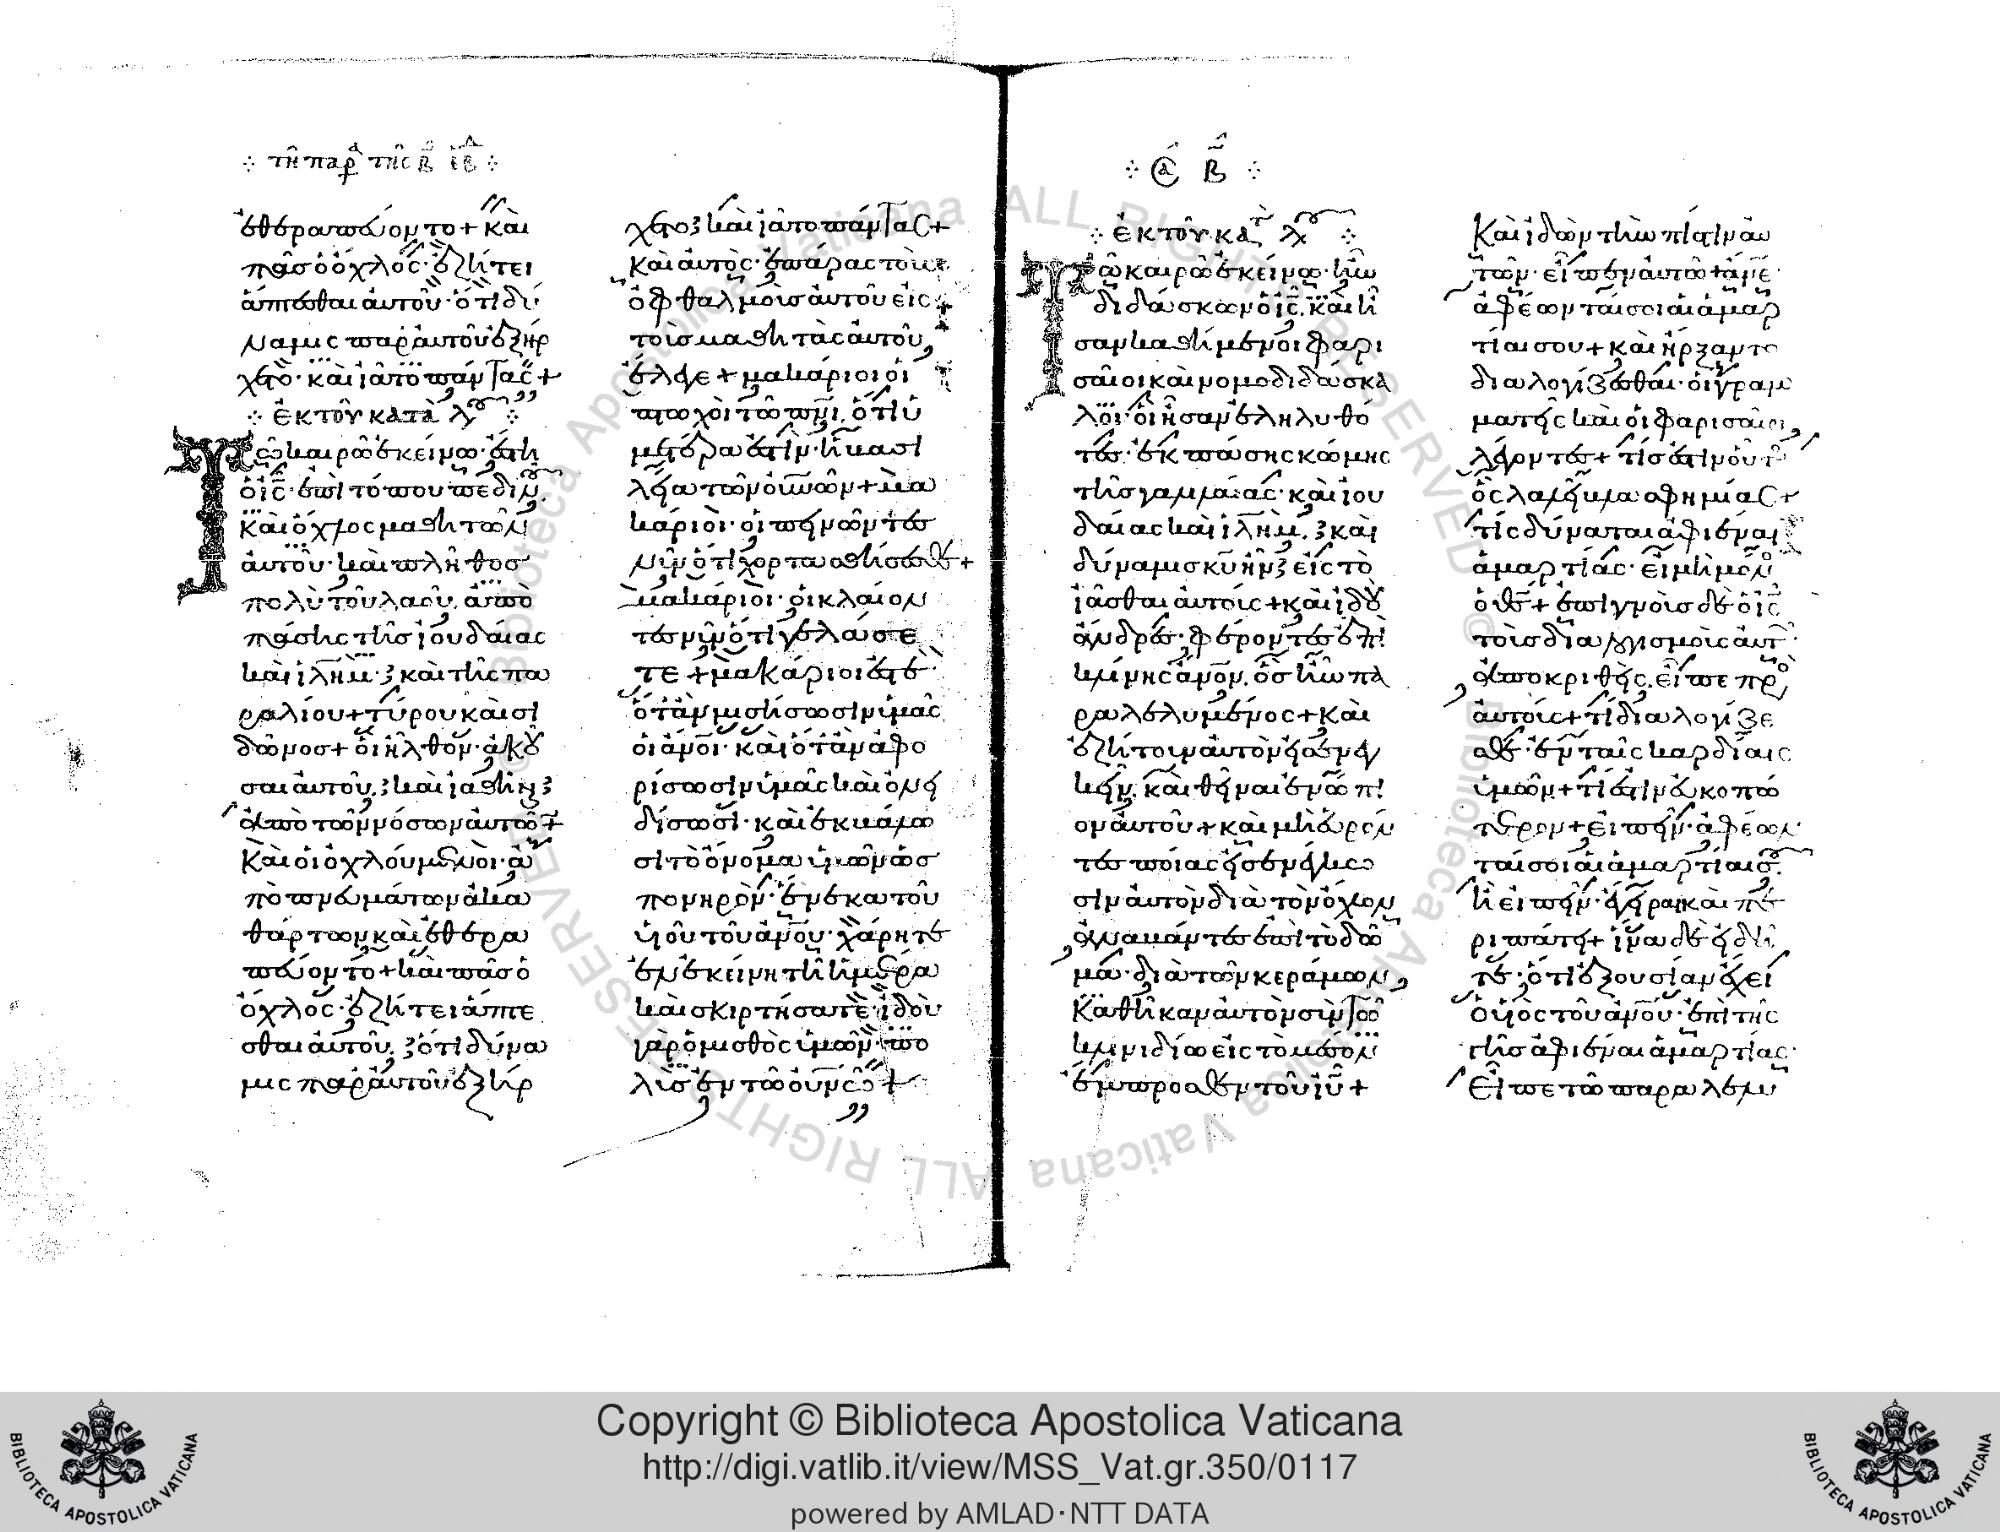 τῆ παρ τῆς β ἑβ
ἐθεραπεύοντο + καὶ
πᾶσ ὁ ὄχλος· ἐζήτει
ἅπτεσθαι αὐτοῦ· ὅτι δύ
ναμις παρ αὐτοῦ ἐξήρ
χετο· καὶ ἰᾶτο πάντας +
ἐκ τοῦ κατὰ λου
Τῶ καιρῶ ἐκείνω· ἔστη
ὁ ις· ἐπὶ τόπου πεδινοῦ
καὶ ὄχλος μαθητῶν
αὐτοῦ· καὶ πλῆθος
πολὺ τοῦ λαοῦ, ἀπὸ
πάσης τῆς ἰουδαίας
καὶ ιλημ· καὶ τῆς πα
ραλίου + τύρου καὶ σι
δῶνος + οἳ ἦλθον· ἀκοῦ
σαι αὐτοῦ, καὶ ἰαθῆν
ἀπὸ τῶν νόσων αὐτῶν +
καὶ οἱ ὀχλούμενοι· ἀ
πὸ πνευμάτων ἀκα
θάρτων καὶ ἐθερα
πεύοντο + καὶ πᾶσ ὁ
ὄχλος· ἐζήτει ἅπτε
σθαι αὐτοῦ, ὅτι δύνα
μις παρ αὐτοῦ ἐξήρ
χετο καὶ ἰᾶτο πάντας +
καὶ αὐτὸς· ἐπάρας τοὺς
ὀφθαλμοὺς αὐτοῦ εἰς
τοὺς μαθητὰς αὐτοῦ,
ἔλεγε + μακάριοι οἱ
πτωχοὶ τῶ πνι, ὅτι ὑ
μετέρα ἐστὶν· ἡ βασι
λεία τῶν οὐνῶν + μα
κάριοι· οἱ πεινῶντες
νῦν ὅτι χορτασθήσεσθε +
μακάριοι· οἱ κλαίον
τες νῦν ὅτι γελάσε
τε + μακάριοι ἐστὲ·
ὅταν μισήσωσιν ὑμᾶς
οἱ ανοι· καὶ ὅταν ἀφο
ρίσωσιν ὑμᾶς καὶ ὀνει
δίσωσι· καὶ ἐκβάλω
σι τὸ ὄνομα ὑμῶν ὡς
πονηρὸν· ἕνεκα τοῦ
υἱοῦ τοῦ ανου· χάρητε
ἐν ἐκείνη τῆ ἡμέρα
καὶ σκιρτήσατε· ἰδοὺ
γὰρ ὁ μισθὸς ὑμῶν· πο
λὺς ἐν τῶ οὐνῶ +
Σα β
ἐκ τοῦ κατ λου
Τῶ καιρῶ ἐκείνω· ἦν
διδάσκων ὁ ις, καὶ ἦ
σαν καθήμενοι φαρι
σαῖοι καὶ νομοδιδάσκα
λοι· οἳ ἦσαν ἐληλυθό
τες· ἐκ πάσης κώμης
τῆς γαλιλαίας· καὶ ἰου
δαίας καὶ ιλημ, καὶ
δύναμις κυ ἦν εἰς τὸ
ἰᾶσθαι αὐτούς + καὶ ἰδοὺ
ἄνδρες· φέροντες ἐπὶ
κλίνης ανον, ὃς ἦν πα
ραλελυμένος + καὶ
ἐζήτουν αὐτὸν εἰσενεγ
κεῖν, καὶ θεῖναι ἐνώπι
ον αὐτοῦ + καὶ μὴ εὑρόν
τες ποίας εἰσενέγκω
σιν αὐτὸν διὰ τὸν ὄχλον
ἀναβάντες ἐπὶ τὸ δῶ
μα· διὰ τῶν κεράμων,
καθῆκαν αὐτὸν σὺν τῶ
κλινιδίω εἰς τὸ μέσον
ἔμπροσθεν τοῦ ιυ +
καὶ ἰδὼν τὴν πίστιν αὐ
τῶν· εἶπεν αὐτῶ + ανε·
ἀφέωνταί σοι αἱ ἁμαρ
τίαι σου + καὶ ἤρξαντο
διαλογίζεσθαι· οἱ γραμ
ματεῖς καὶ οἱ φαρισαῖοι,
λέγοντες + τίς ἐστιν οὗτος
ὃς λαλεῖ βλασφημίας +
τίς δύναται ἀφιέναι
ἁμαρτίας· εἰ μὴ μόνος
ὁ θς + ἐπιγνοὺς δὲ ὁ ις
τοὺς διαλογισμοὺς αὐτ·
ἀποκριθεὶς, εἶπε πρὸς
αὐτούς + τί διαλογίζε
σθε· ἐν ταῖς καρδίαις
ὑμῶν + τί ἐστιν εὐκοπώ
τερον + εἰπεῖν· ἀφέων
ταί σοι αἱ ἁμαρτίαι σου
ἢ εἰπεῖν· ἔγειραι καὶ πε
ριπάτει + ἵνα δὲ εἰδῆ
τε· ὅτι ἐξουσίαν ἔχει
ὁ υἱὸς τοῦ ανου· ἐπὶ τῆς
γῆς ἀφιέναι ἁμαρτίας·
εἶπε τῶ παραλελυ
Copyright © Biblioteca Apostolica Vaticana
http://digi.vatlib.it/view/MSS_Vat.gr.350/0117
powered by AMLAD·NTT DATA
BIBLIOTECA APOSTOLICA VATICANA
BIBLIOTECA APOSTOLICA VATICANA
© Biblioteca Apostolica Vaticana ALL RIGHTS RESERVED © Biblioteca Apostolica Vaticana ALL RIGHTS RESERVED